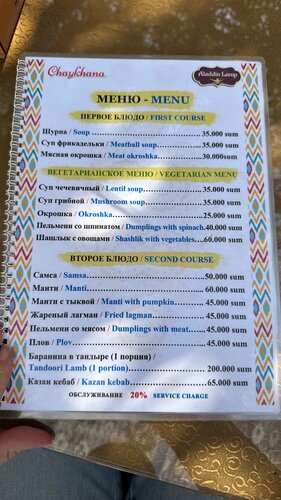 Chaykhana
Aladdin Lamp
МЕНЮ - MENU
ПЕРВОЕ БЛЮДО / FIRST COURSE
Шурпа / Soup 35.000 sum
Суп фрикадельки / Meatball soup 35.000 sum
Мясная окрошка / Meat okroshka 30.000sum
ВЕГЕТАРИАНСКОЕ МЕНЮ / VEGETARIAN MENU
Суп чечевичный / Lentil soup 35.000 sum
Суп грибной / Mushroom soup 35.000 sum
Окрошка / Okroshka 25.000 sum
Пельмени со шпинатом / Dumplings with spinach.40.000 sum
Шашлык с овощами / Shashlik with vegetables 60.000 sum
ВТОРОЕ БЛЮДО / SECOND COURSE
Самса / Samsa 50.000 sum
Манты / Manti 60.000 sum
Манты с тыквой / Manti with pumpkin 45.000 sum
Жареный лагман / Fried lagman 45.000 sum
Пельмени со мясом / Dumplings with meat 45.000 sum
Плов / Plov 45.000 sum
Баранина в тандыре (1 порция) /
Tandoori Lamb (1 portion) 200.000 sum
Казан кебаб / Kazan kebab 65.000 sum
ОБСЛУЖИВАНИЕ 20% SERVICE CHARGE